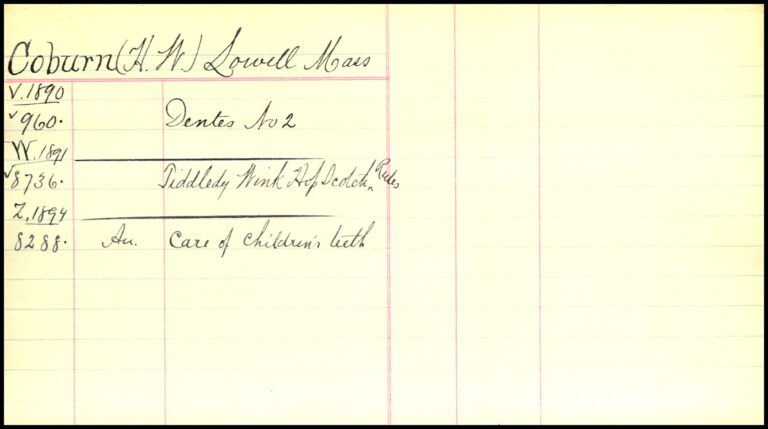 Coburn (H. W.) Lowell Mass
V. 1890
✓960. Dentes No 2
W. 1891
✓8736. Tiddledy Wink Hop Scotch ‸ Rules
Z, 1894
8288. Au. Care of children's teeth